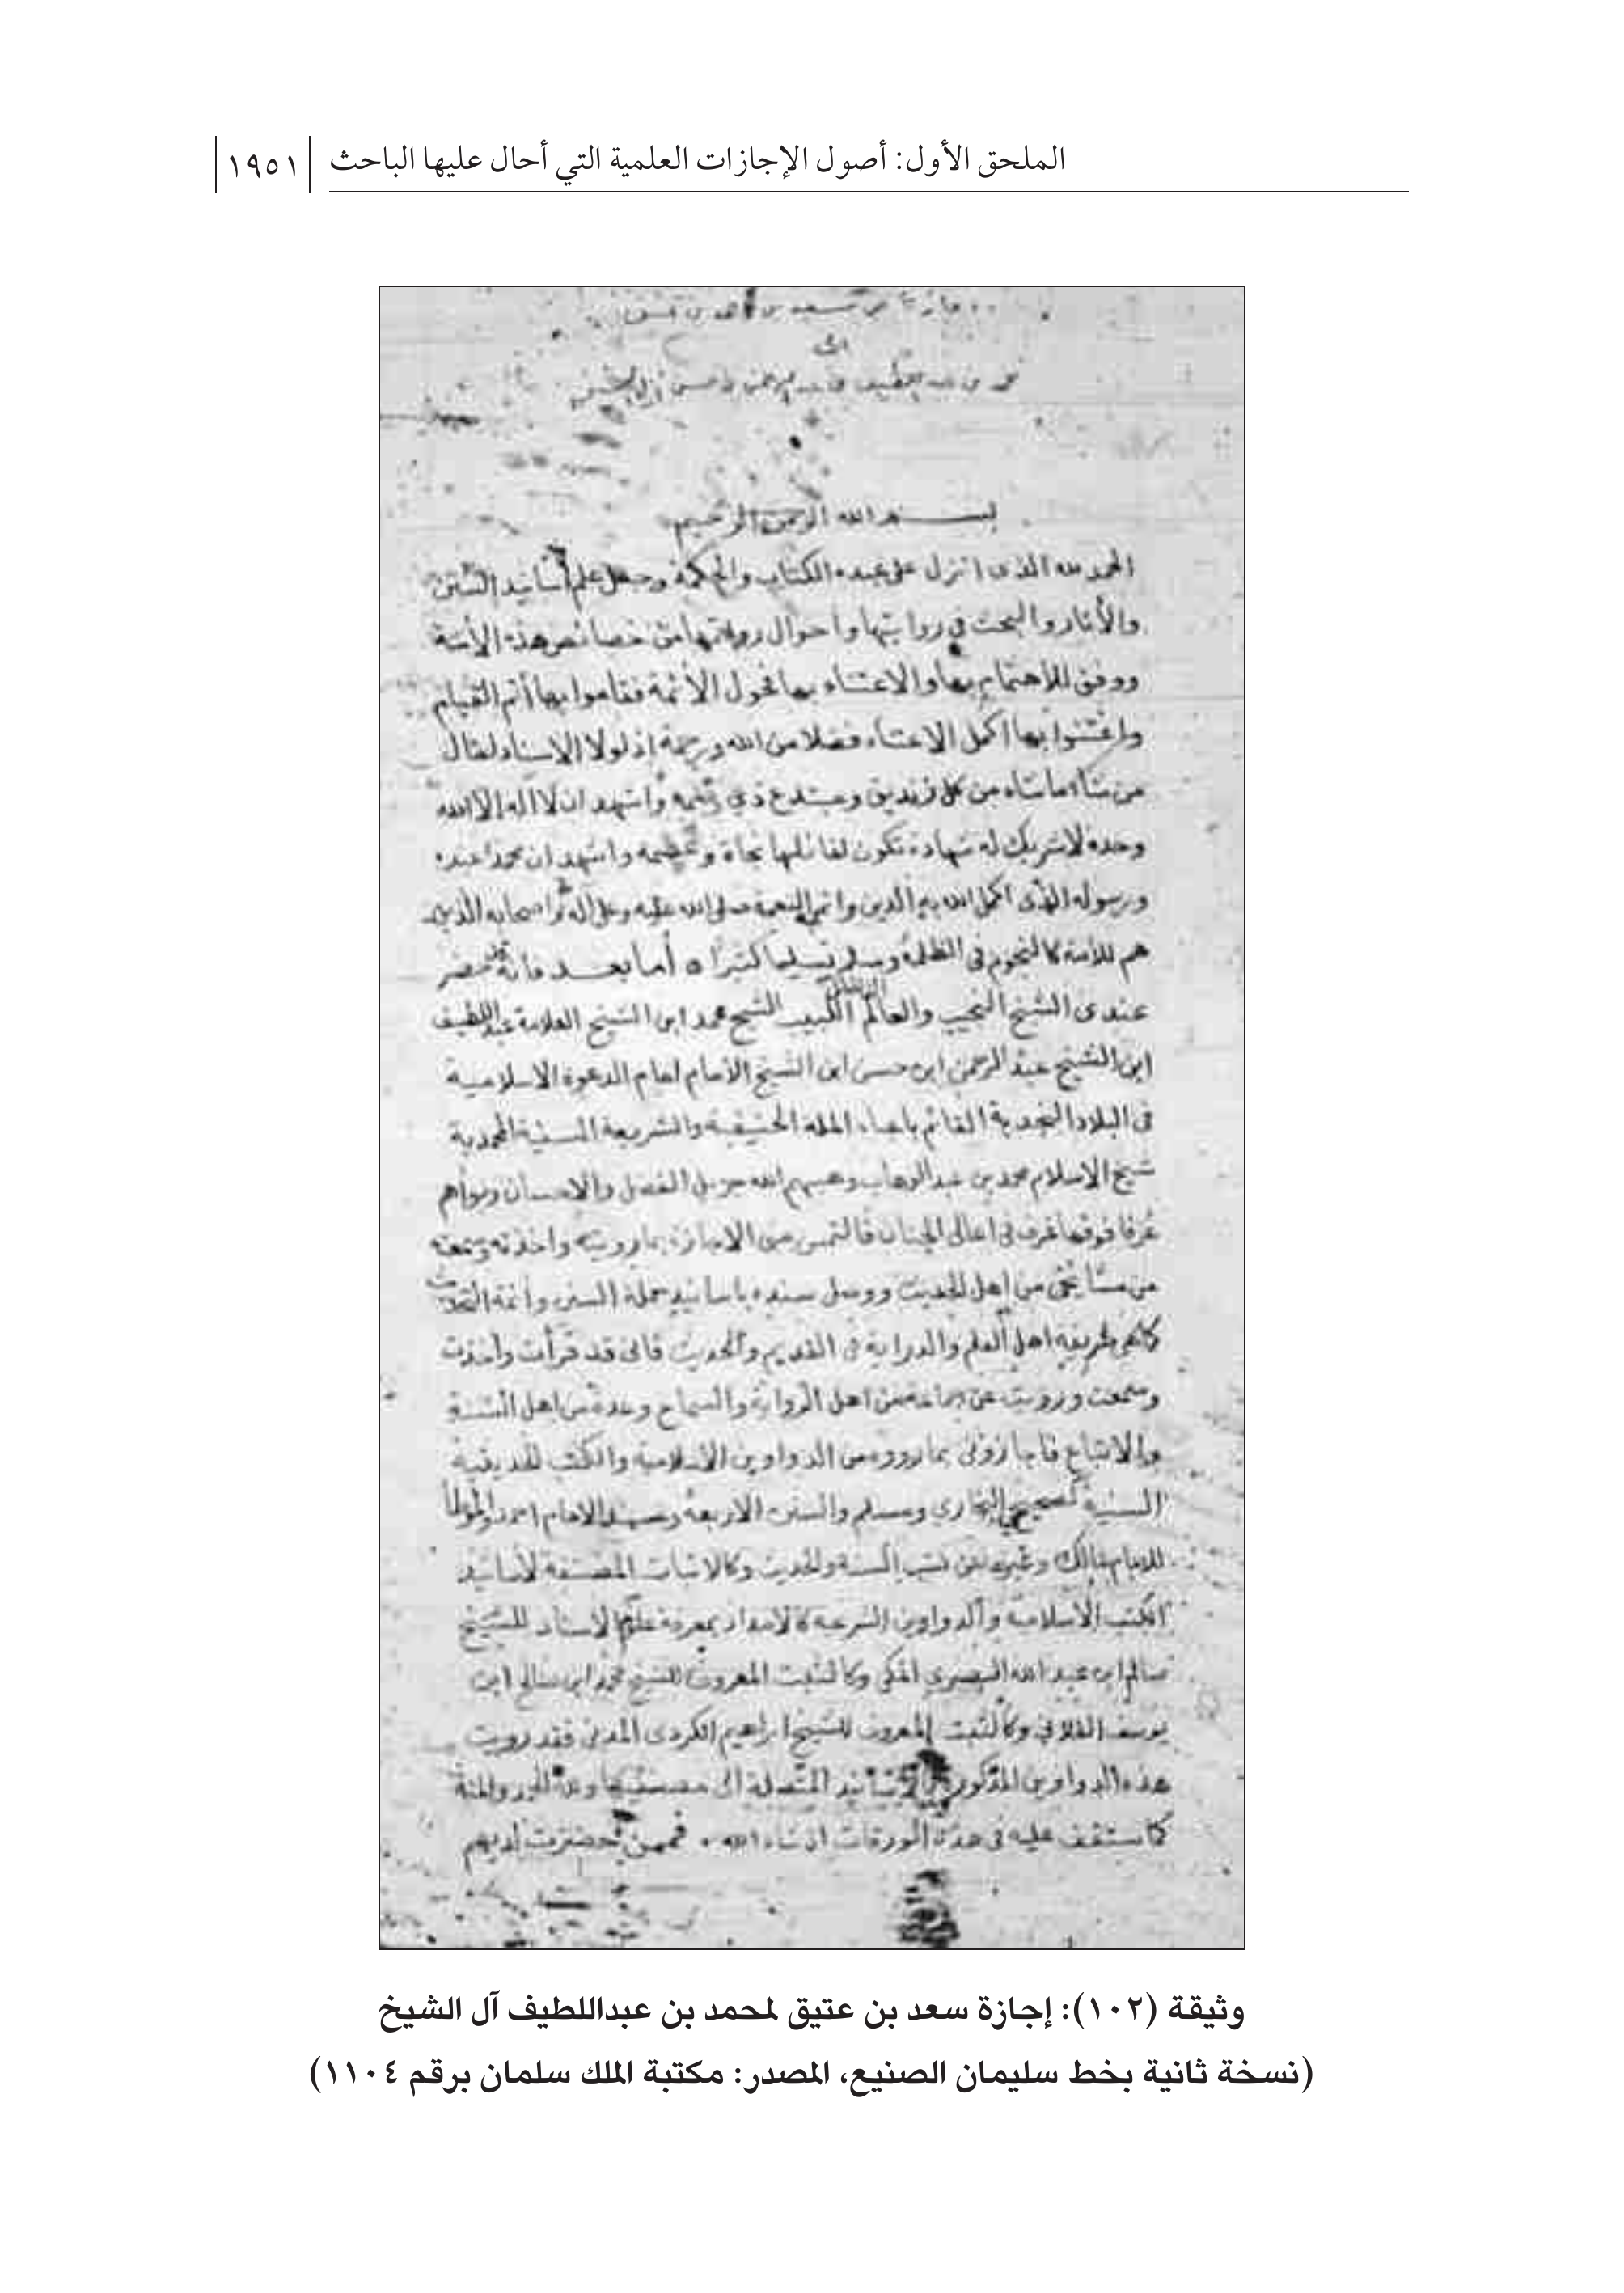 الملحق الأول: أصول الإجازات العلمية التي أحال عليها الباحث ١٩٥١
سعد بن
الى
محمد بن عبد اللطيف بن عبد الرحمن بن حسن آل الشيخ
بسم الله الرحمن الرحيم
الحمد لله الذى انزل على عبده الكتاب والحكمة وجعل علم أسانيد السنن
والأثار والبحث في روايتها واحوال رواتها من خصائص هذه الأمة
ووفق للاهتمام بها والاعتناء بها فحول الأئمة فقاموا بها أتم القيام
واعتنوا بها اكمل الاعتناء فضلا من الله ورحمة إذ لولا الاسناد لقال
من شاء ما شاء من كل زنديق ومبتدع ذي واشهد ان لا اله الا الله
وحده لا شريك له شهادة تكون لقائلها نجاة وعصمه واشهد ان محمدا عبده
ورسوله الذى اكمل الله به الدين واتم النعمة صلى الله عليه وعلى آله واصحابه الذين
هم للأمة كالنجوم فى الظلمة وسلم تسليما كثيرا أما بعد فانه قد حضر
عندى الشيخ النجيب والعالم اللبيب الشيخ محمد ابن الشيخ العلامة عبد اللطيف
ابن الشيخ عبد الرحمن ابن حسن ابن الشيخ الأمام امام الدعوة الاسلامية
فى البلاد النجدية القائم باعباء الملة الحنيفية والشريعة السنية المحمدية
شيخ الاسلام محمد بن عبد الوهاب وهبهم الله جزيل الفضل والاحسان وبوأهم
غرفا فوقها غرف فى اعالى الجنان فالتمس منى الاجازة بما رويته واخذته وسمعته
من مشائخى من اهل الحديث ووصل سنده باسانيد حملة السنن وأئمة التحديث
كما هى طريقة اهل العلم والدراية فى القديم والحديث فانى قد قرأت وأخذت
وسمعت ورويت عن جماعة من اهل الرواية والسماع وعدة من اهل السنة
والاتباع فاجازونى بما رووه من الدواوين الأسلامية والكتب الحديثية
السنية كصحيحي البخاري ومسلم والسنن الاربعة ومسند الامام احمد والموطأ
للامام مالك وغيرها من كتب السنة والحديث وكالاثبات المصنفة لأسانيد
الكتب الأسلامية والدواوين الشرعية كالامداد بمعرفة علو الاسناد للشيخ
سالم ابن عبد الله البصري المكي وكالثبت المعروف للشيخ محمد ابن صالح ابن
يوسف الفلاني وكالثبت المعروف للشيخ ابراهيم الكردى المدني فقد رويت
هذه الدواوين المذكورة بالأسانيد المتصلة الى مصنفيها ولله الحمد والمنة
كما ستقف عليه فى هذة الورقات ان شاء الله . فممن حضرت لديهم
وثيقة (١٠٢): إجازة سعد بن عتيق لمحمد بن عبداللطيف آل الشيخ
(نسخة ثانية بخط سليمان الصنيع، المصدر: مكتبة الملك سلمان برقم ١١٠٤)